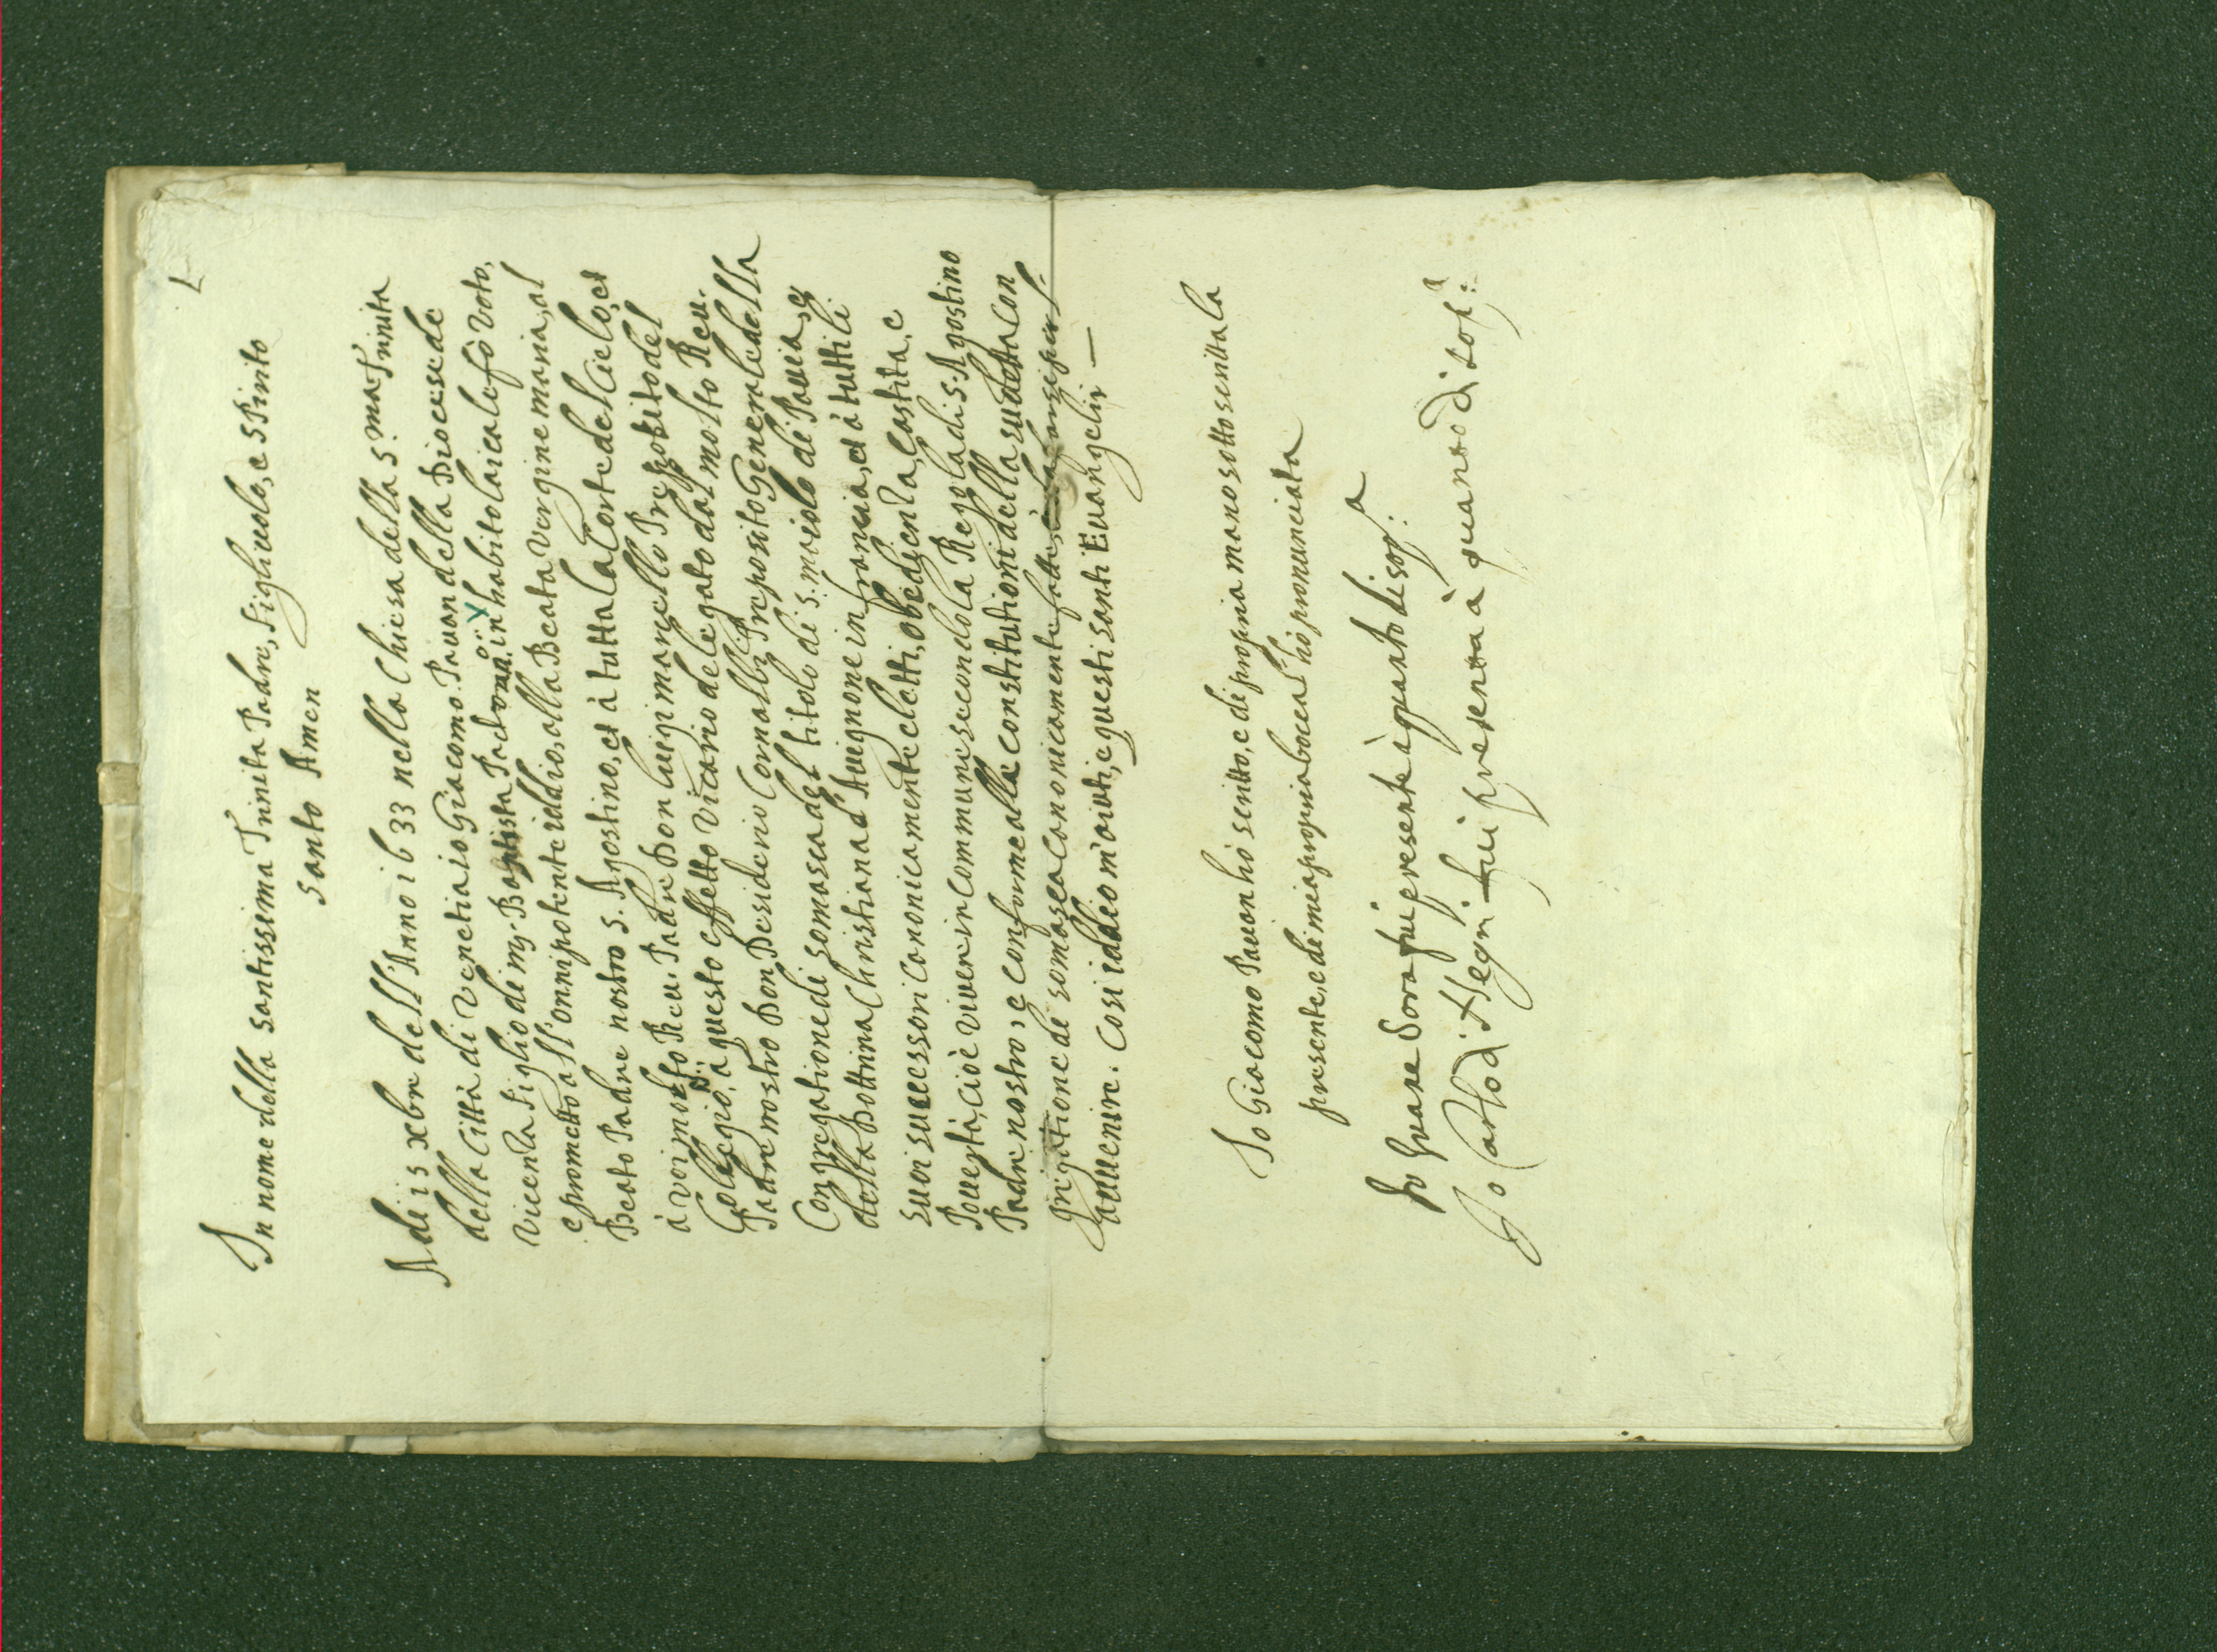 7
In nome della santissima Trinita Padre, figliuolo, e spirito
santo Amen
Adi 15 xbre dell'Anno 1633 nella Chiesa della S.ma Trinita
della Città di Venetia io Giacomo Pauan della Diocese de
Vicenza figlio di mr. Baptista in habito laicale fò voto,
e prometto all'onnipotente iddio, alla Beata Vergine maria, al
Beato Padre nostro S. Agostino, et à tutta la Corte del Cielo, et
à voi molto Reu. Padre Don luigi manello Preposito del
Collegio, à questo effetto Vicario delegato dal molto Reu.
Padre nostro Don Desiderio Cornalba Preposito Generale della
Congregatione di somasca del titolo di S. maiolo di Pauia, e
della Dottrina Christiana d'Auignone in francia, et à tutti li
suoi successori Canonicamente eletti, obedienza, castita, e
Pouertà, cioè viuer in commune secondo la Regola di S. Agostino
Padre nostro, e conforme alle constitutioni della sudetta Con
grigatione de somasca Canonicamente fatte,
auuenire. Cosi iddio m'aiuti, e questi santi Euangelij —
Io Giacomo Pauan hò scritto, e di propria mano sottoscritta la
presente, e di mia propria bocca l'hò pronunciata
Io fui presente à quanto di sop.a
Io Carlo di fui presenta à quanto di sop.a